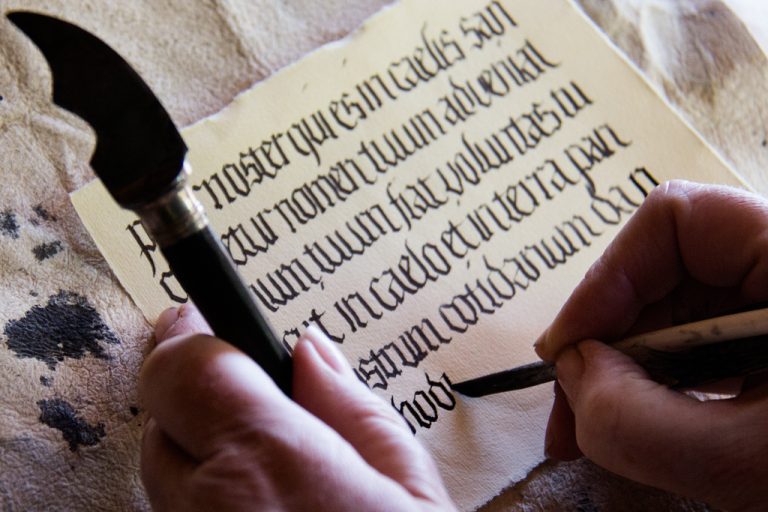 noster qui es in caelis san
etur nomen tuum adveniat
num tuum fiat voluntas tu
cut in caelo et in terra pan
strum cotidianum da n
hodi